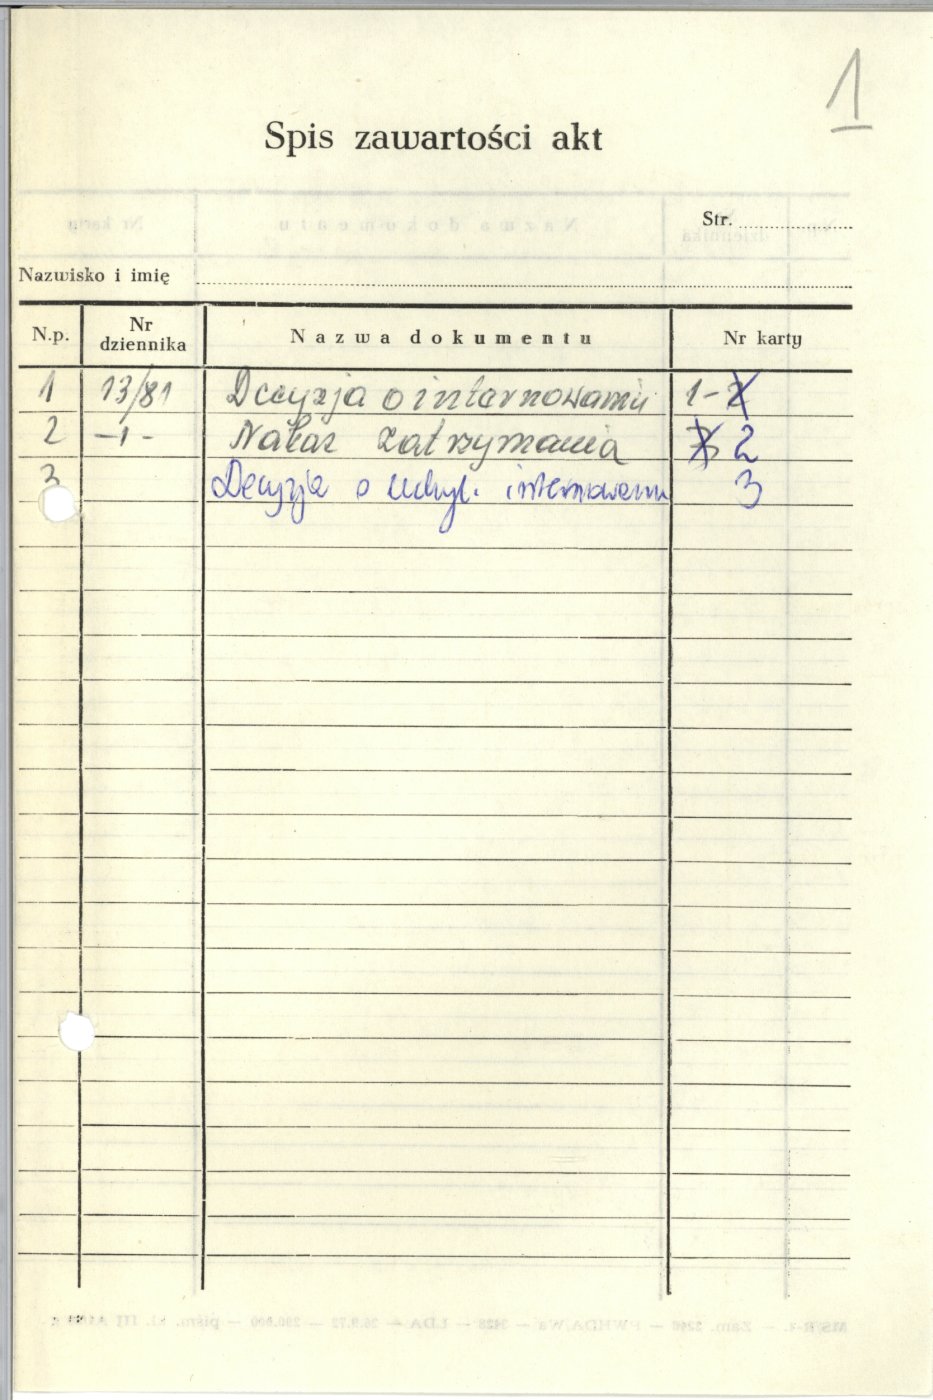 1
Spis zawartości akt
Str.
Nazwisko i imię
N.p. Nr dziennika Nazwa dokumentu Nr karty
1 13/81 Decyzja o internowaniu 1-2
2 -1- Nakaz zatrzymania 3 2
3 Decyzja o uchyl. internowania 3